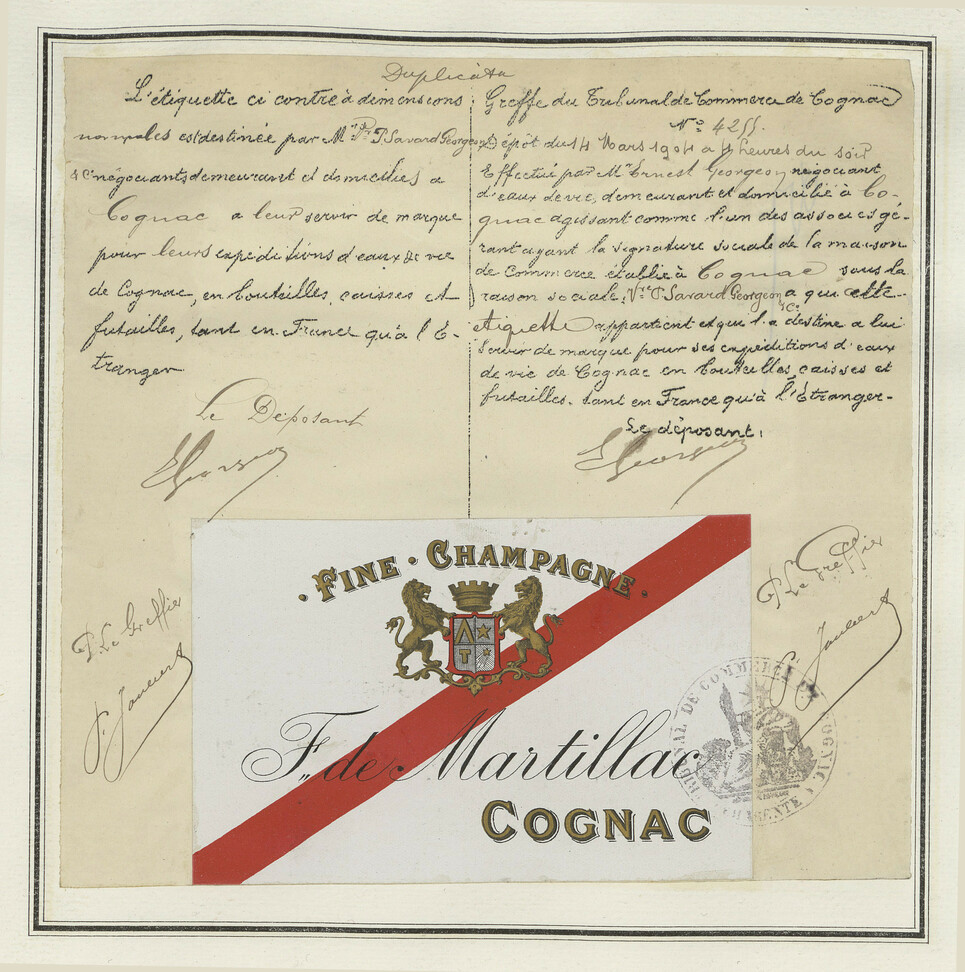 Duplicata
L'étiquette ci contre à dimensions
normales est destinée par Mr Vve P. Savard Georgeon
& Cie négociants demeurant et domiciliés a
Cognac a leur servir de marque
pour leurs expéditions d'eaux de vie
de Cognac, en bouteilles, caisses et
futailles, tant en France qu'à l'É-
tranger
Le Déposant
EGeorgeon
Greffe du Tribunal de Commerce de Cognac
No 4255.
Dépôt du 14 Mars 1904 a 4 heures du soir
Effectué par Mr Ernest Georgeon négociant
d'eaux de vie, demeurant et domicilié à Co-
gnac agissant comme l'un des associés gé-
rant ayant la signature sociale de la maison
de Commerce établie à Cognac sous la
raison sociale, Vve P. Savard Georgeon & Cie a qui cette
étiquette appartient et qui l'a destine a lui
servir de marque pour ses expéditions d'eaux
de vie de Cognac en bouteilles, caisses et
futailles. tant en France qu'à l'Étranger-
Le déposant,
EGeorgeon
P. Le Greffier
P. Le Greffier
· FINE · CHAMPAGNE ·
T
F. de Martillac
COGNAC
TRIBUNAL DE COMMERCE DE COGNAC
CHARENTE